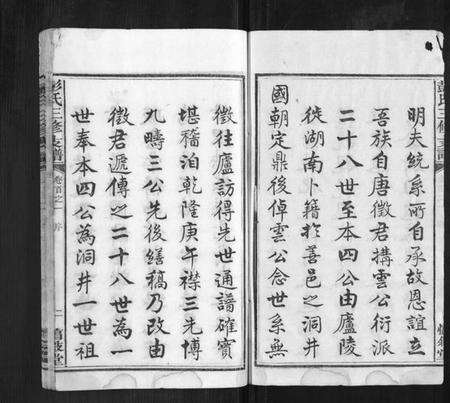 明夫統系所自承故恩誼立
吾族自唐徵君搆雲公衍派
二十八世至本四公由廬陵
徙湖南卜籍於善邑之洞井
國朝定鼎後倬雲公念世系無
徵往廬訪得先世通譜確實
堪稽泊乾隆庚午襟三先博
九疇三公先後繕稿乃改由
徵君遞傳之二十八世為一
世奉本四公為洞井一世祖
彭氏三修支譜
卷首之一
序
二
彭氏三修支譜